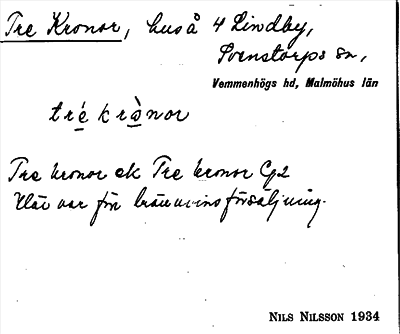 Tre Kronor, hus å 4 Lindby,
Svenstorps sn,
Vemmenhögs hd, Malmöhus län
tré krònor
Tre kronor ek Tre kronor Gj2
Här var förr brännvinsförsäljning.
NILS NILSSON 1934